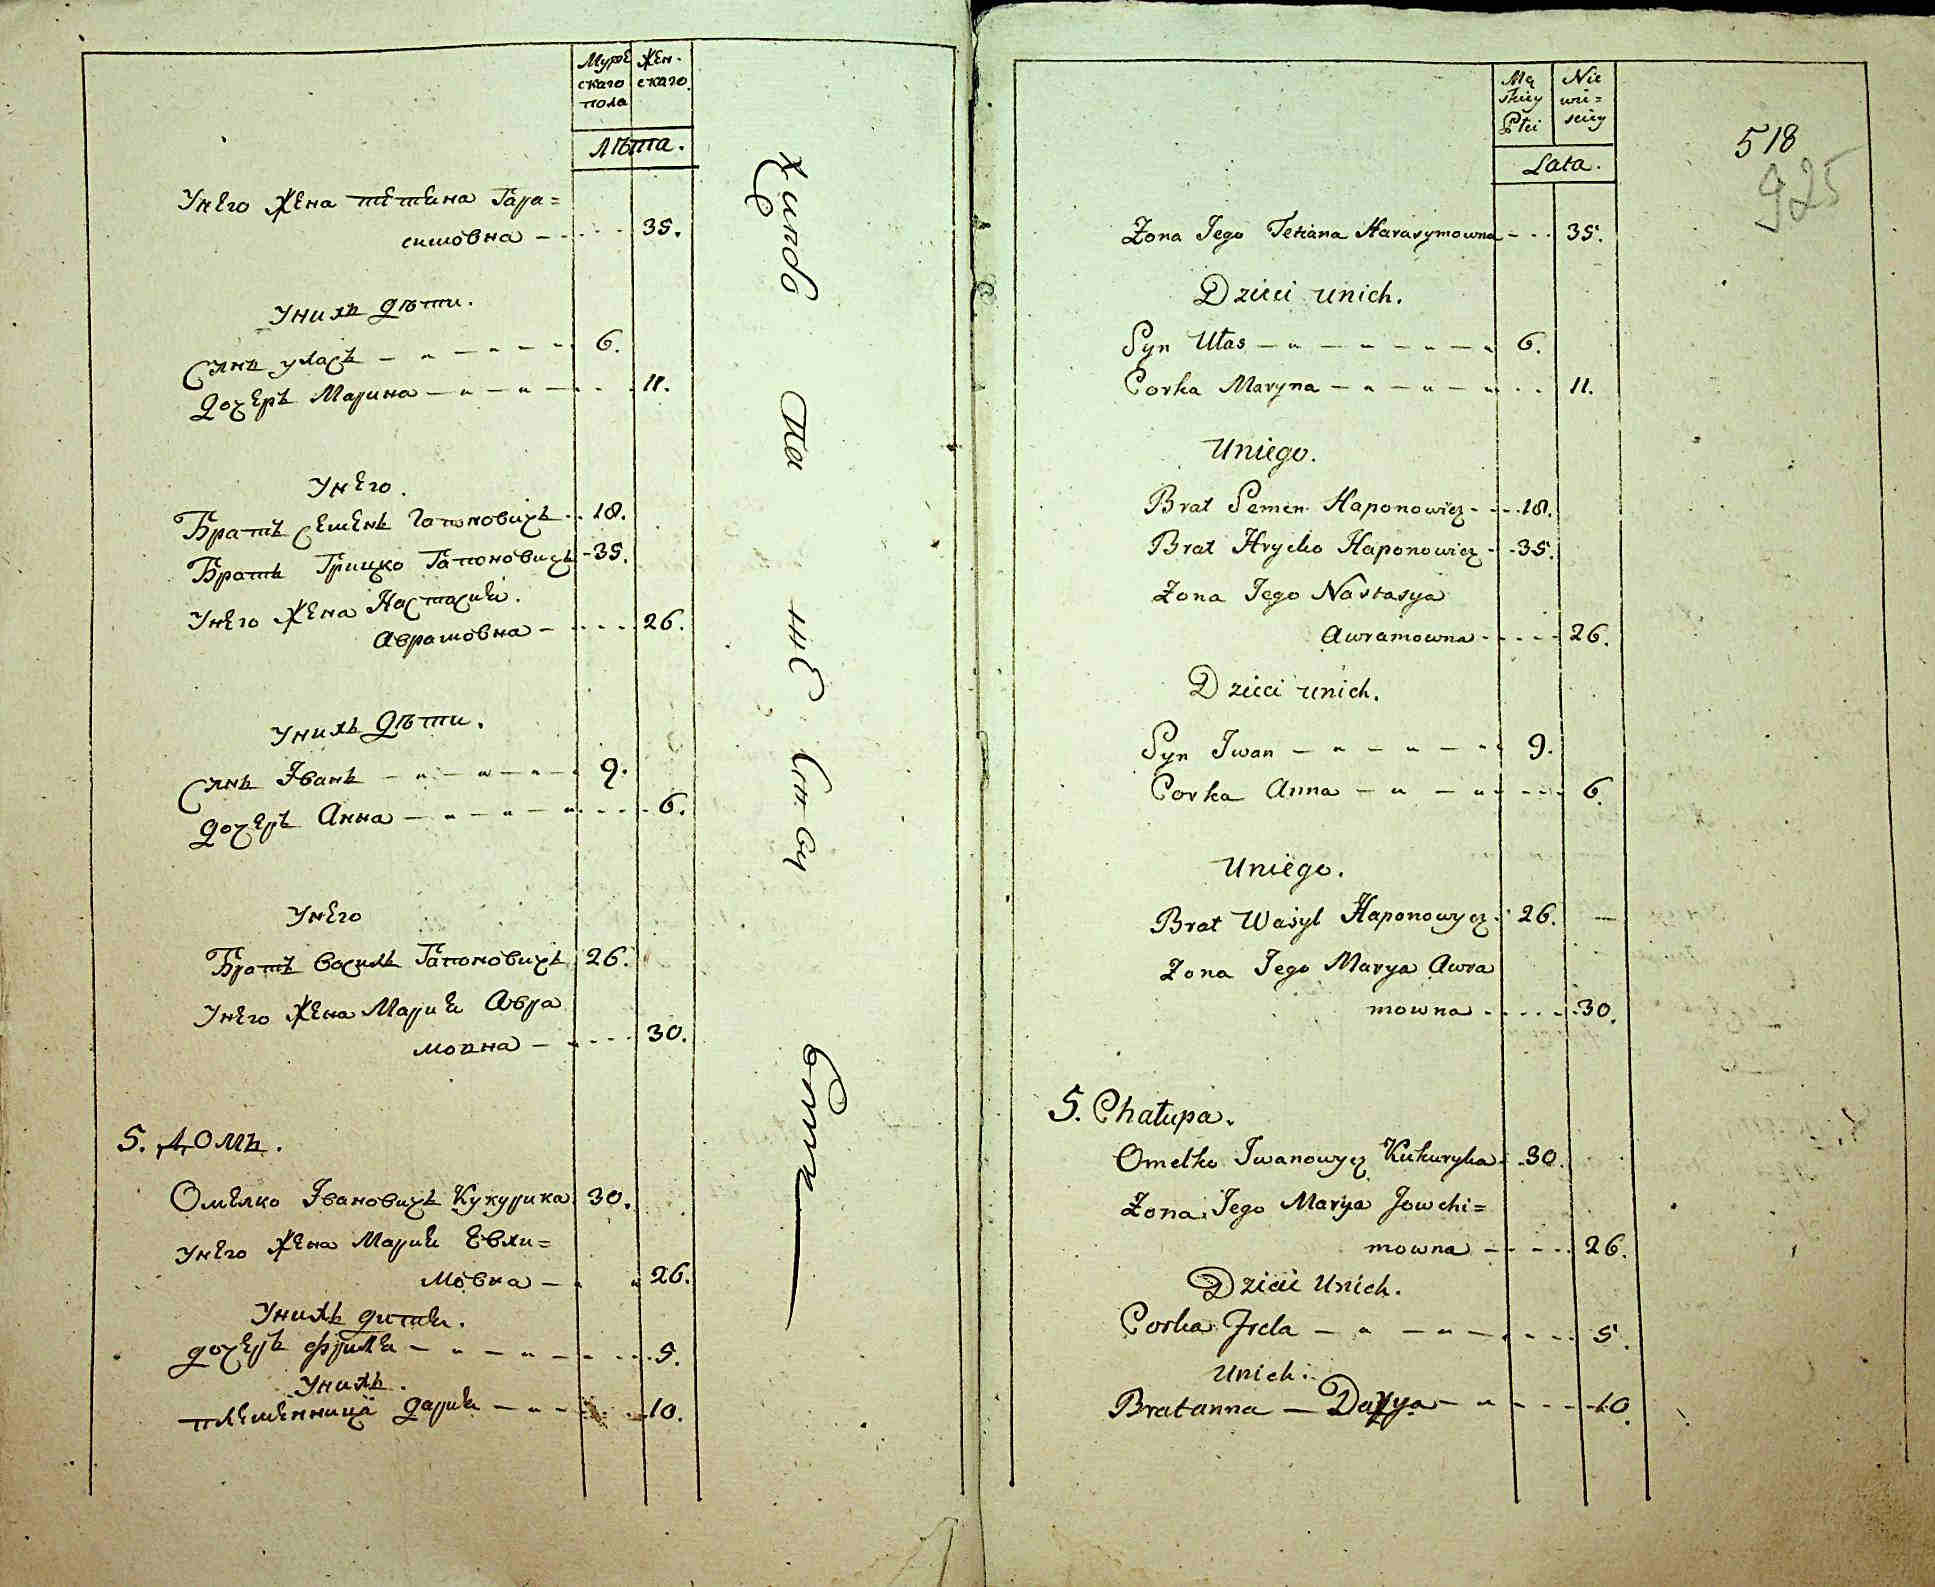 Мужескаго пола
Женскаго
Лѣта.
Унего Жена тетиана Гара=
симовна 35.
Унихъ дѣти.
Сынъ уласъ 6.
дочеръ Марина 11.
Унего.
Братъ Семенъ Гапоновичъ 18.
Братъ Грицко Гапоновичъ 35.
Унего Жена Настасия
Аврамовна 26.
Унихъ дѣти.
Сынъ Іванъ 9.
дочеръ Анна 6.
Унего
Братъ василь Гапоновичъ 26.
Унего Жена Мария Авра
мовна 30.
5. Домъ.
Омелко Івановичъ Кукурика 30.
Унего Жена Мария Евхи=
мовна 26.
Унихъ дитя.
дочеръ 5.
Унихъ.
племенница дария 10.
Męskiey Płci
Niewieściey
Lata.
518
925
Żona Jego Tetiana Harasymowna 35.
Dzieci unich.
Syn Ułas 6.
Corka Maryna 11.
Uniego.
Brat Semen Haponowicz 18.
Brat Hrycko Haponowicz 35.
Żona Jego Nastasya
Awramowna 26.
Dzieci unich.
Syn Iwan 9.
Corka Anna 6.
Uniego.
Brat Wasyl Haponowycz 26. —
Żona Jego Marya Awra
mowna 30.
5. Chałupa.
Omelko Iwanowycz Kukuryka 30.
Żona Jego Marya Jowchi=
mowna 26.
Dzieci Unich.
Corka 5.
Unich.
Bratanna — Darya 10.